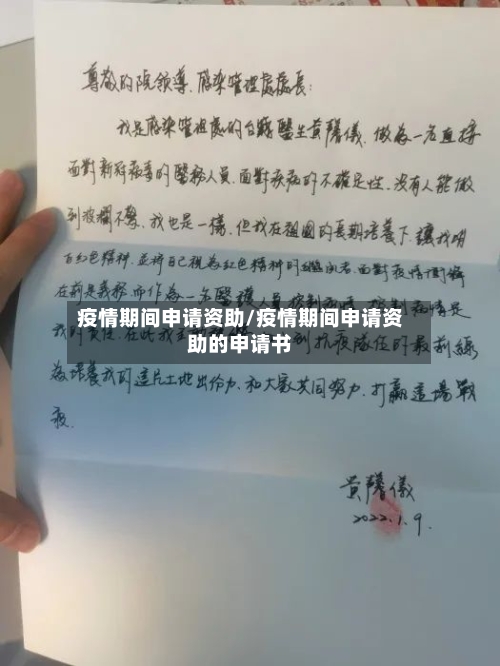 尊敬的院领導、感染管理處處長:
我是感染管理處的台籍醫生黄馨儀，做為一名直接
面對新冠病毒的醫務人員，面對疾病的不確定性，没有人能做
到波瀾不驚，我也是一樣，但我在祖國的長期培養下讓我明
白红色精神，並將自己視為红色精神的
面對疫情
在前是義務，而作為一名醫護人員，控制病情是
疫情期间申请资助/疫情期间申请资
助的申请书
我的責任，在此我
到抗疫隊伍的最前線
為培養我的這片土地出份力，和大家共同努力，打贏這場戰
疫。
黄馨儀
2022.1.9.